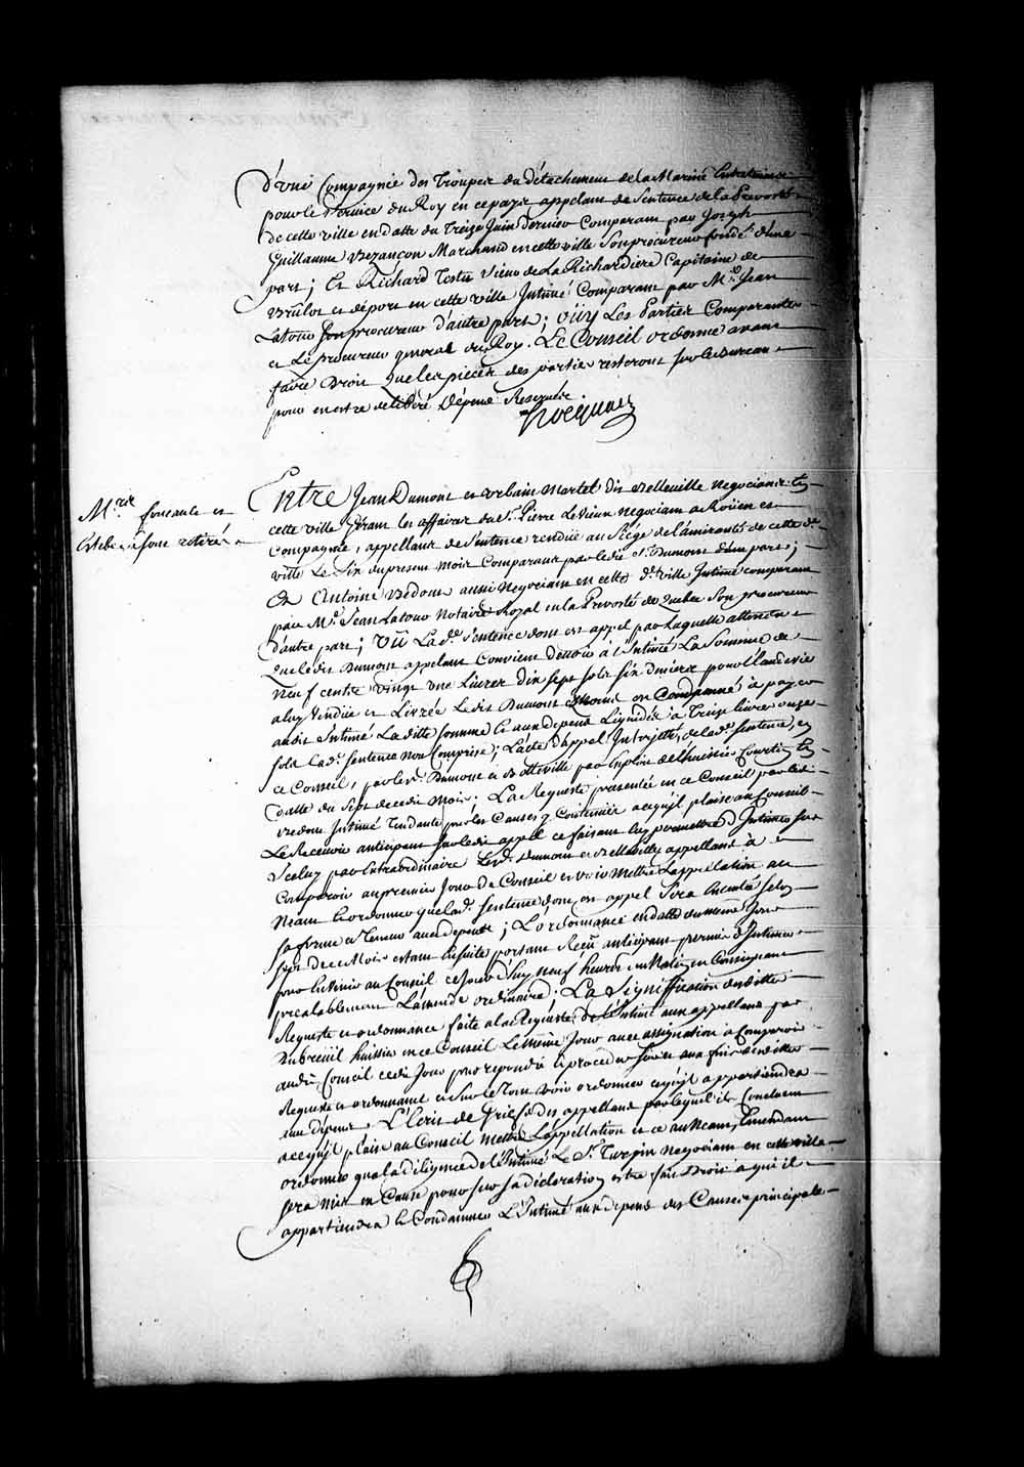 d'une Compagnie des Troupes du détachement de la Marine Entretenue
pour le Service du Roy en ce pays appelant de Sentence de la Prevosté
de cette ville en datte du Treize Juin dernier Comparant par Joseph
Guillaume Bezançon Marchand en cette ville Son procureur fondé d'une
part; Et Richard Testu Sieur de La Richardiere Capitaine de
Brulot et de port en cette ville Intimé Comparant par Me. Jean
Latour Son procureur d'autre part; Oüy Les Parties Comparantes
et Le procureur general du Roy. Le Conseil ordonne avant
faire Droit que les pieces des parties resteront sur le Bureau
pour en estre deliberé Dépens Reservés
Hocquart
Mrs. foucault et
Estebe se sont retirés
Entre Jean Dumont et Urbain Martel dit Belleville negocians En
cette ville gerant les affaires du Sr. Pierre Le Vieux negociant a Roüen et
Compagnie, appellans de Sentence rendüe au Siége de l'amirauté de cette de.
ville Le Six du present mois Comparans par ledit Sr. Dumont d'une part;
Et Antoine Bedout aussi Negociant en cette de. ville Intimé comparant
par Me. Jean Latour Notaire Royal en la Prevosté de Quebec Son procureur
d'autre part; Vû La de. Sentence dont est appel par Laquelle attendu
que ledit Dumont appelant Convient devoir à l'Intimé La Somme de
Neuf cents vingt une Livres dix sept sols six deniers pour l'Eauderie
a luy Vendüe et Livrée Ledit Dumont est Condamné à payer
audit Intimé La ditte Somme et aux depens Liquidés à Treize livres onze
sols la de. Sentence non Comprise; L'acte d'appel Interjetté, de la de. Sentence, en
ce Conseil, par les Srs. Dumont et Belleville par Exploit de l'huissier Courtin En
datte du Sept de ce dit Mois; La Requeste presentée en ce Conseil par led.
Bedout Intimé Tendante pour les Causes y Contenües a ce qu'il plaise au Conseil
Le Recevoir anticipant sur ledit appel ce faisant luy permettre d'Intimer sur
Iceluy par Extraordinaire Les Srs. Dumont et Belleville appellans à
Comparoir au premier Jour de Conseil et voir Mettre L'appellation au
Neant Et ordonner que la de. Sentence dont est appel Sera Executée Selon
Sa forme et Teneur aux depens; L'ordonnance en datte du même Jour
Sept de ce Mois estant Ensuite portant Reçû anticipant permis d'Intimer
pour Estre Venir au Conseil ce Jourd'huy neuf heures du Matin en Consignant
prealablement L'amende ordinaire; La Signiffication desdittes
Requeste et ordonnance faite a la Requeste de l'Intimé aux appellans par
Dubreüil huissier en ce Conseil Le même Jour avec assignation à Comparoir
audit Conseil ce dit Jour pour repondre Et proceder Sur et aux fins desdittes
Requeste et ordonnance et Sur le Tout voir ordonner ce qu'il appartiendra
aux depens. L'Ecrit de Griefs desd. appellans par lequel ils Concluent
a ce qu'il plaise au Conseil Mettre L'appellation et ce au Neant, Emendant
ordonner qu'a la diligence de l'Intimé Le Sr. Turpin Negociant en cette ville
Sera Mis en Cause pour sur Sa déclaration estre fait Droit a qui il
appartiendra Et Condamner L'Intimé aux depens des Causes principale